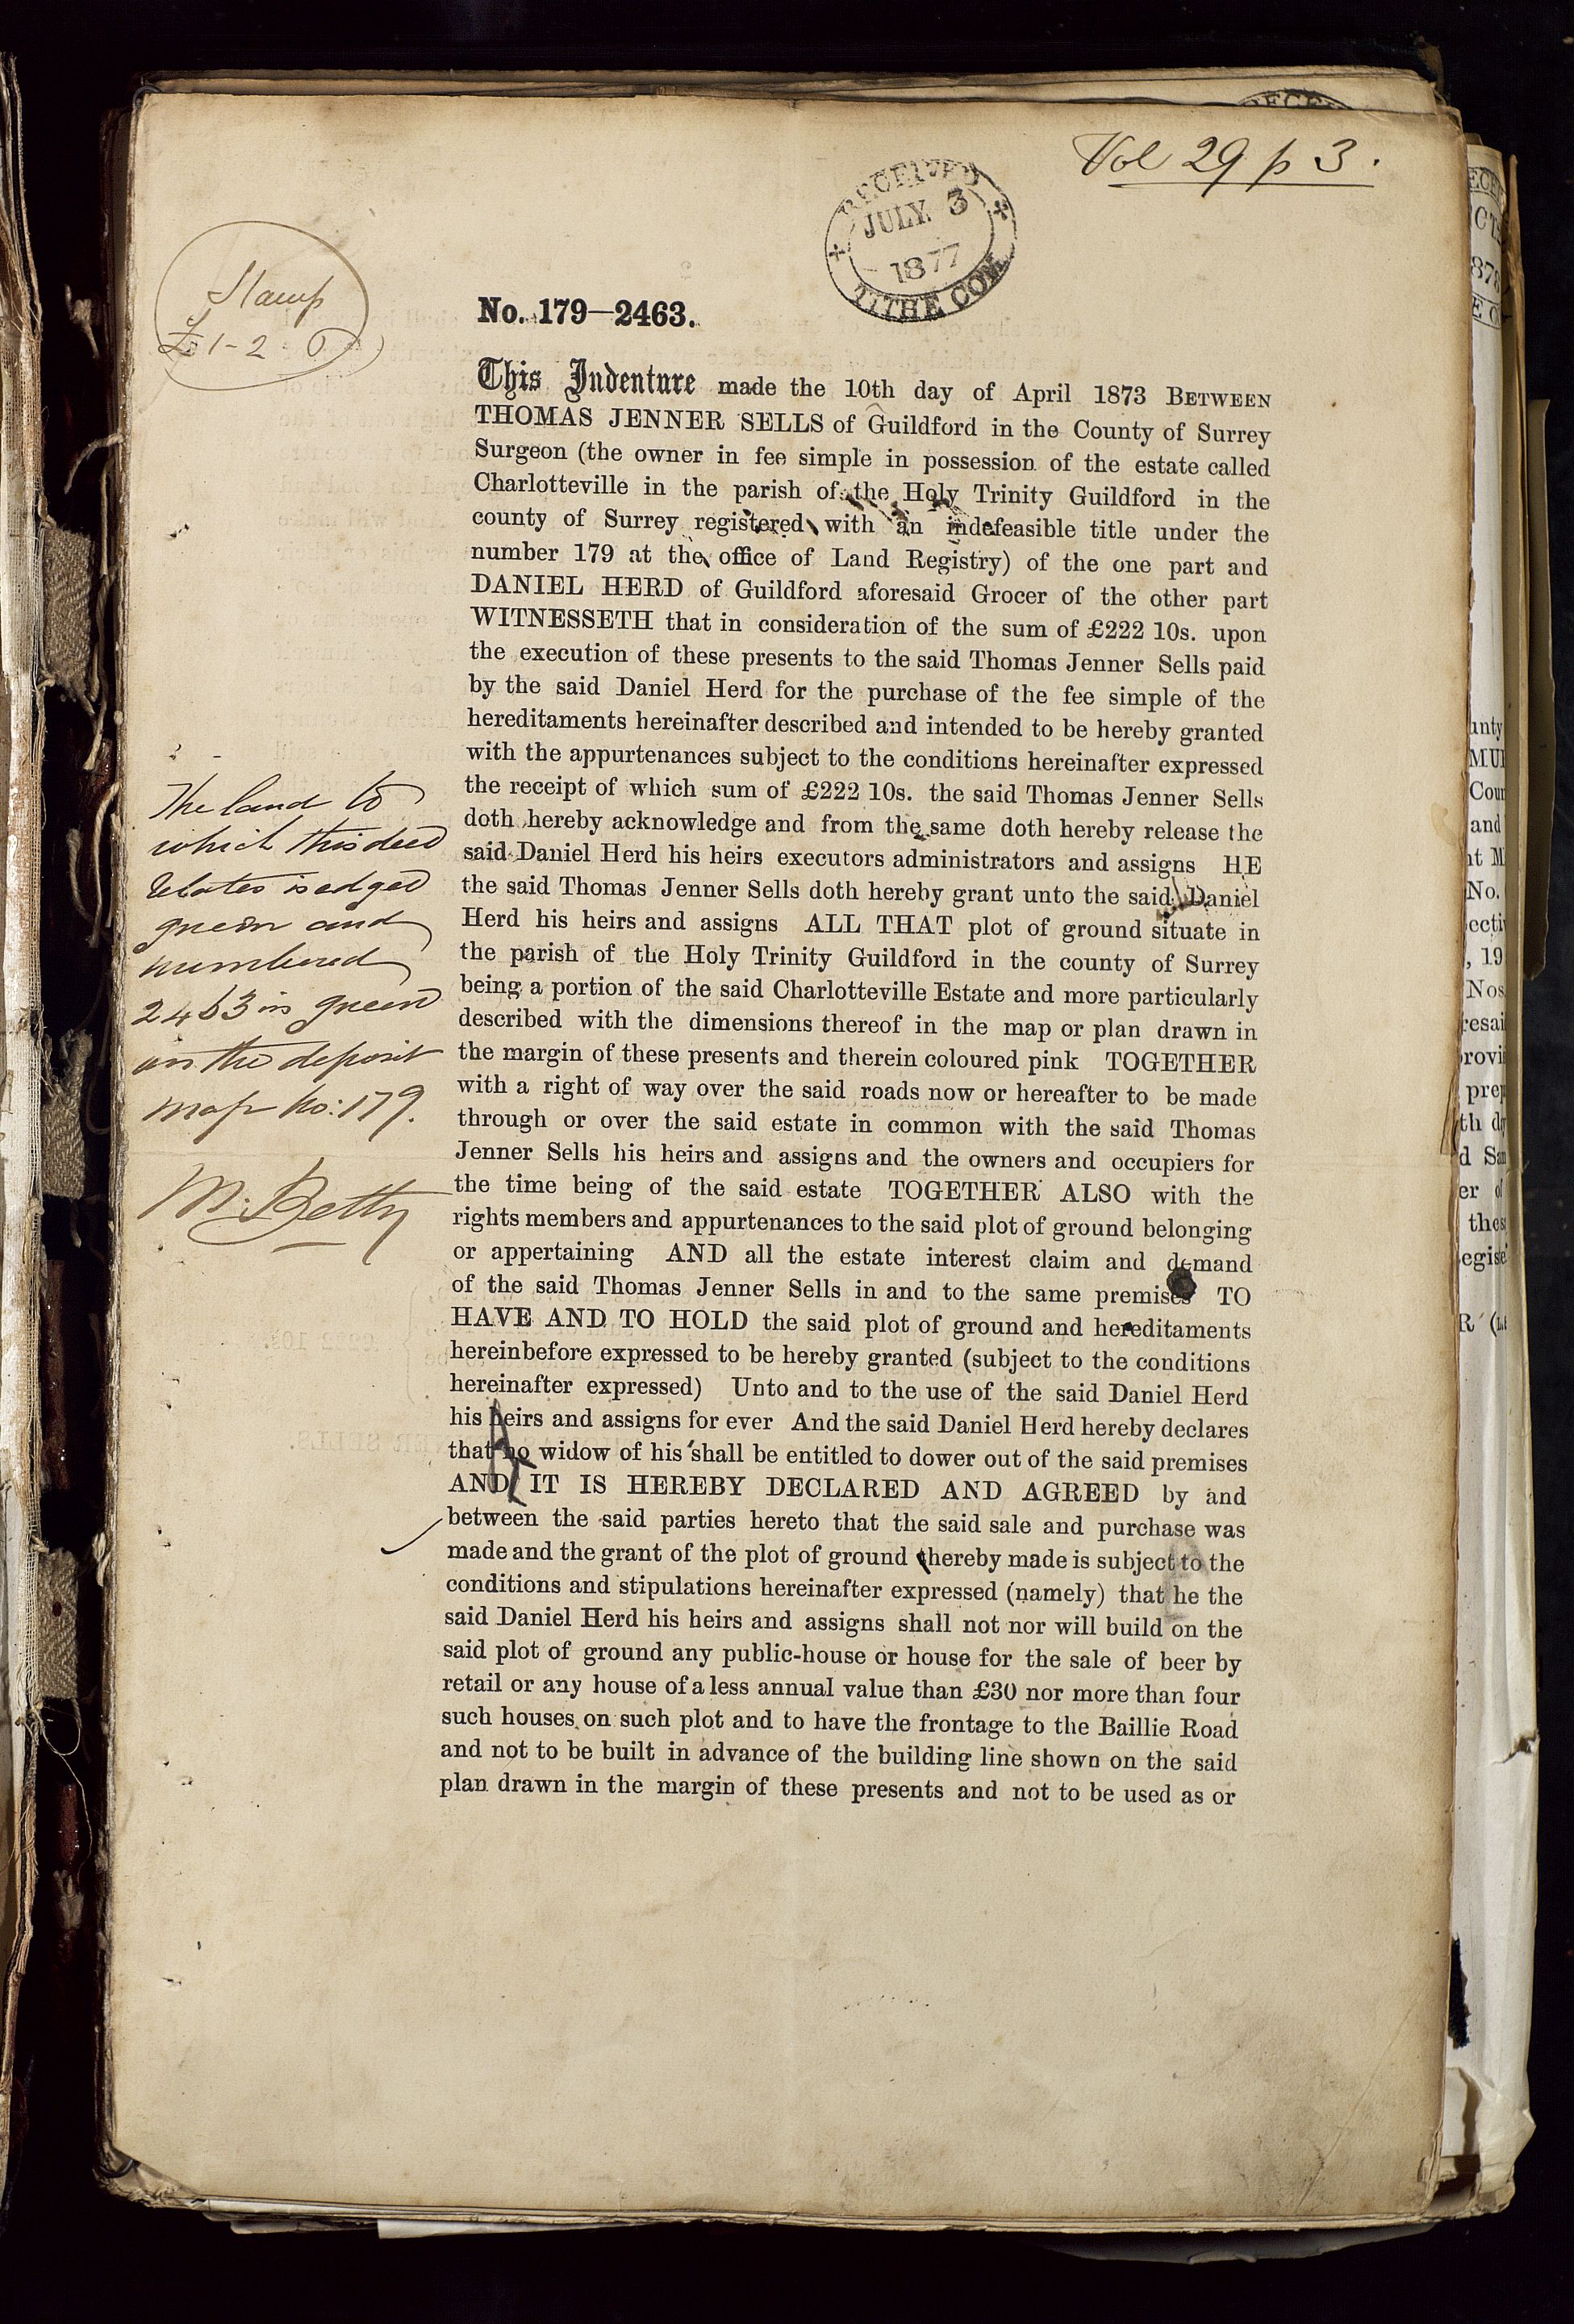 Vol 29 p 3.
RECEIVED
JULY 3
1877
TITHE COM
Stamp
£1-2-0
No. 179—2463.
This Indenture made the 10th day of April 1873 BETWEEN
THOMAS JENNER SELLS of Guildford in the County of Surrey
Surgeon (the owner in fee simple in possession of the estate called
Charlotteville in the parish of the Holy Trinity Guildford in the
county of Surrey registered with an indefeasible title under the
number 179 at the office of Land Registry) of the one part and
DANIEL HERD of Guildford aforesaid Grocer of the other part
WITNESSETH that in consideration of the sum of £222 10s. upon
the execution of these presents to the said Thomas Jenner Sells paid
by the said Daniel Herd for the purchase of the fee simple of the
hereditaments hereinafter described and intended to be hereby granted
with the appurtenances subject to the conditions hereinafter expressed
the receipt of which sum of £222 10s. the said Thomas Jenner Sells
doth hereby acknowledge and from the same doth hereby release the
said Daniel Herd his heirs executors administrators and assigns HE
the said Thomas Jenner Sells doth hereby grant unto the said Daniel
Herd his heirs and assigns ALL THAT plot of ground situate in
the parish of the Holy Trinity Guildford in the county of Surrey
being a portion of the said Charlotteville Estate and more particularly
described with the dimensions thereof in the map or plan drawn in
the margin of these presents and therein coloured pink TOGETHER
with a right of way over the said roads now or hereafter to be made
through or over the said estate in common with the said Thomas
Jenner Sells his heirs and assigns and the owners and occupiers for
the time being of the said estate TOGETHER ALSO with the
rights members and appurtenances to the said plot of ground belonging
or appertaining AND all the estate interest claim and demand
of the said Thomas Jenner Sells in and to the same premises TO
HAVE AND TO HOLD the said plot of ground and hereditaments
hereinbefore expressed to be hereby granted (subject to the conditions
hereinafter expressed) Unto and to the use of the said Daniel Herd
his heirs and assigns for ever And the said Daniel Herd hereby declares
that no widow of his shall be entitled to dower out of the said premises
AND IT IS HEREBY DECLARED AND AGREED by and
between the said parties hereto that the said sale and purchase was
made and the grant of the plot of ground thereby made is subject to the
conditions and stipulations hereinafter expressed (namely) that he the
said Daniel Herd his heirs and assigns shall not nor will build on the
said plot of ground any public-house or house for the sale of beer by
retail or any house of a less annual value than £30 nor more than four
such houses on such plot and to have the frontage to the Baillie Road
and not to be built in advance of the building line shown on the said
plan drawn in the margin of these presents and not to be used as or
The land to
which this deed
relates is edged
green and
numbered
2463 in green
on the deposit
map No: 179.
M. Betty